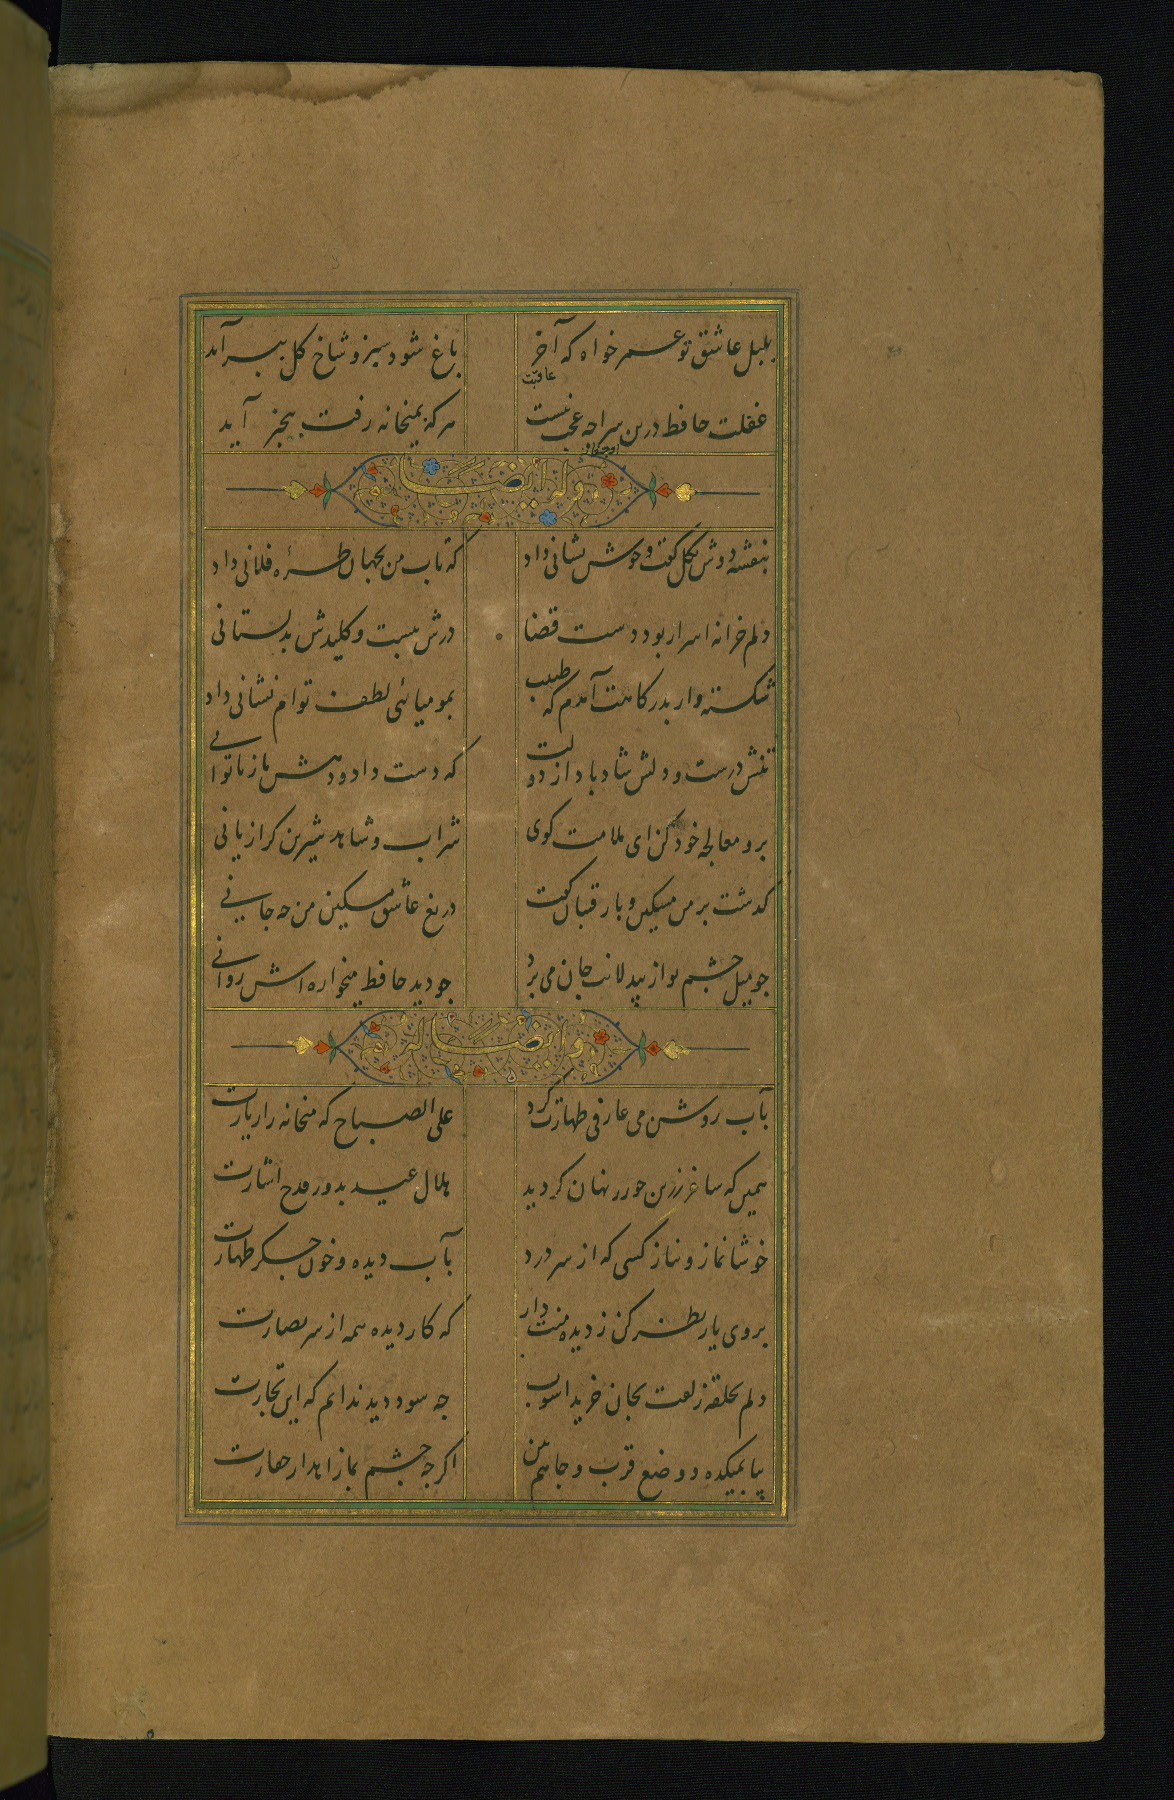 بلبل عاشق تو عمر خواه که آخر باغ شود سبز و شاخ کل ببر آمد
عاقبت
غفلت حافظ درین سراچه عجب نیست هر که بمیخانه رفت بیخبر آید
وله ایضا
بنفشه دوش بکل کفت و خوش نشانی داد که تاب من بجهان طرهٔ فلانی داد
دلم خزانه اسرار بود دست قضا درش ببست و کلیدش بدلستانی
شکسته وار بدرکاهت آمدم که طبیب بمومیائی لطف توام نشانی داد
تنش درست و دلش شاد باد از دولت که دست داد و دهش باز ناتوانی
برو معالجه خود کن ای ملامت کوی شراب و شاهد شیرین کرا زیانی
کذشت بر من مسکین و با رقیبان کفت دریغ عاشق مسکین من چه جانی
جو میل جشم تو از بیدلانت جان می برد جو دید حافظ میخواره اش روانی
وایضا له
بآب روشن می عارفی طهارت کرد علی الصباح که میخانه را زیارت
همین که ساغر زرین خور نهان کردید هلال عید بدور قدح اشارت
خوشا نماز و نیاز کسی که از سر درد بآب دیده و خون جکر طهارت
بروی یار نظر کن ز دیده منت دار که کار دیده همه از سر بصارت
دلم بحلقه زلفت بجان خرید آشوب جه سود دید ندانم که این تجارت
بیا بمیکده و وضع قرب و جاهم بین اکرجه جشم بما زاهد از حقارت